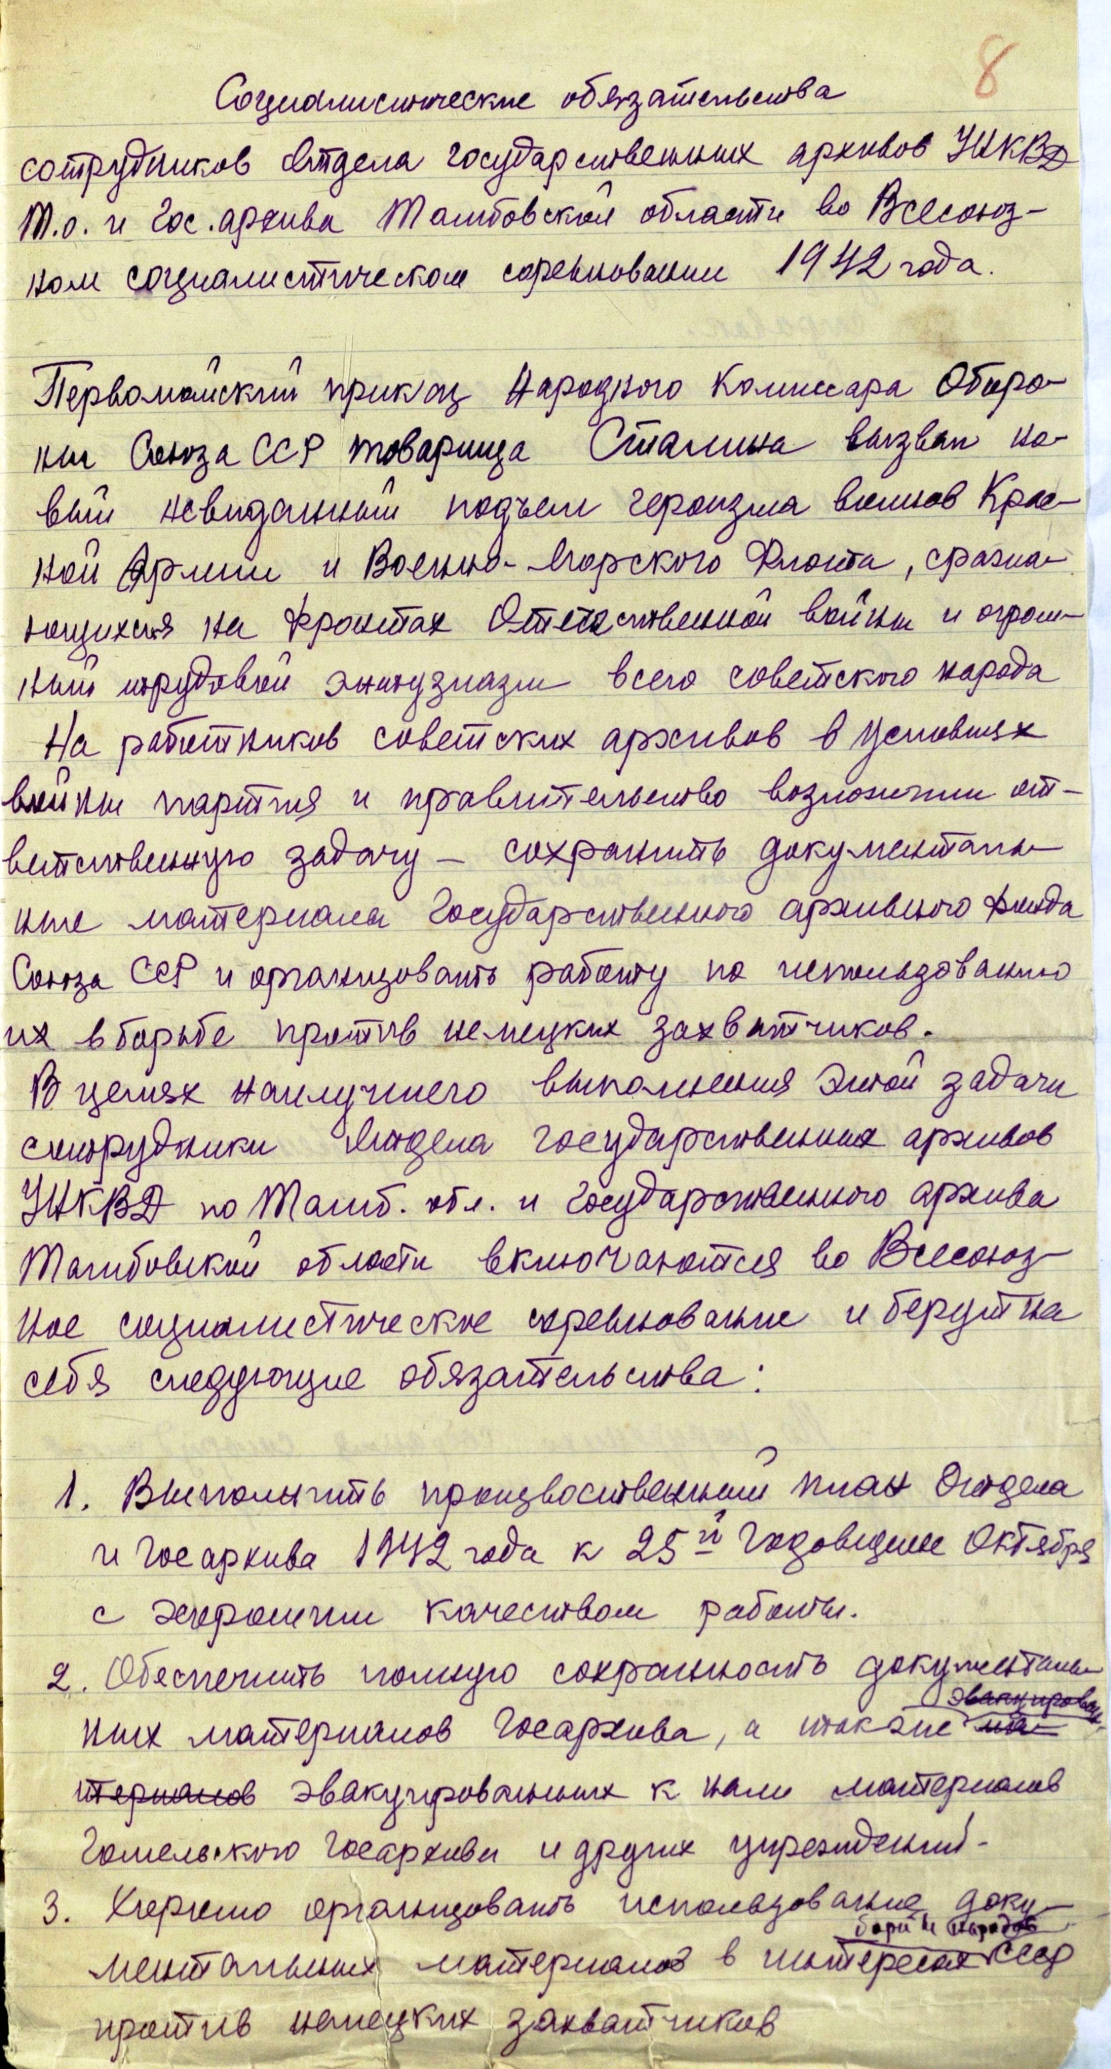 8
Социалистические обязательства
сотрудников Отдела государственных архивов УНКВД
Т.о. и Гос. архива Тамбовской области во Всесоюз-
ном социалистическом соревновании 1942 года.
Первомайский приказ Народного Комиссара Оборо-
ны Союза ССР товарища Сталина вызвал но-
вый невиданный подъем героизма воинов Крас-
ной Армии и Военно-Морского Флота, сража-
ющихся на фронтах Отечественной войны и огром-
ный трудовой энтузиазм всего советского народа
На работников советских архивов в условиях
войны партия и правительство возложили от-
ветственную задачу – сохранить документаль-
ные материалы Государственного архивного фонда
Союза ССР и организовать работу по использованию
их в борьбе против немецких захватчиков.
В целях наилучшего выполнения этой задачи
сотрудники Отдела государственных архивов
УНКВД по Тамб. обл. и Государственного архива
Тамбовской области включаются во Всесоюз-
ное социалистическое соревнование и берут на
себя следующие обязательства:
1. Выполнить производственный план Отдела
и Госархива 1942 года к 25й годовщине Октября
с хорошим качеством работы.
2. Обеспечить полную сохранность документаль-
эвакуирован-
ных материалов Госархива, а также ма-
териалов эвакуированных к нам материалов
Гомельского Госархива и других учреждений.
3. Хорошо организовать использование доку-
народов
ментальных материалов в интересах СССР
против немецких захватчиков